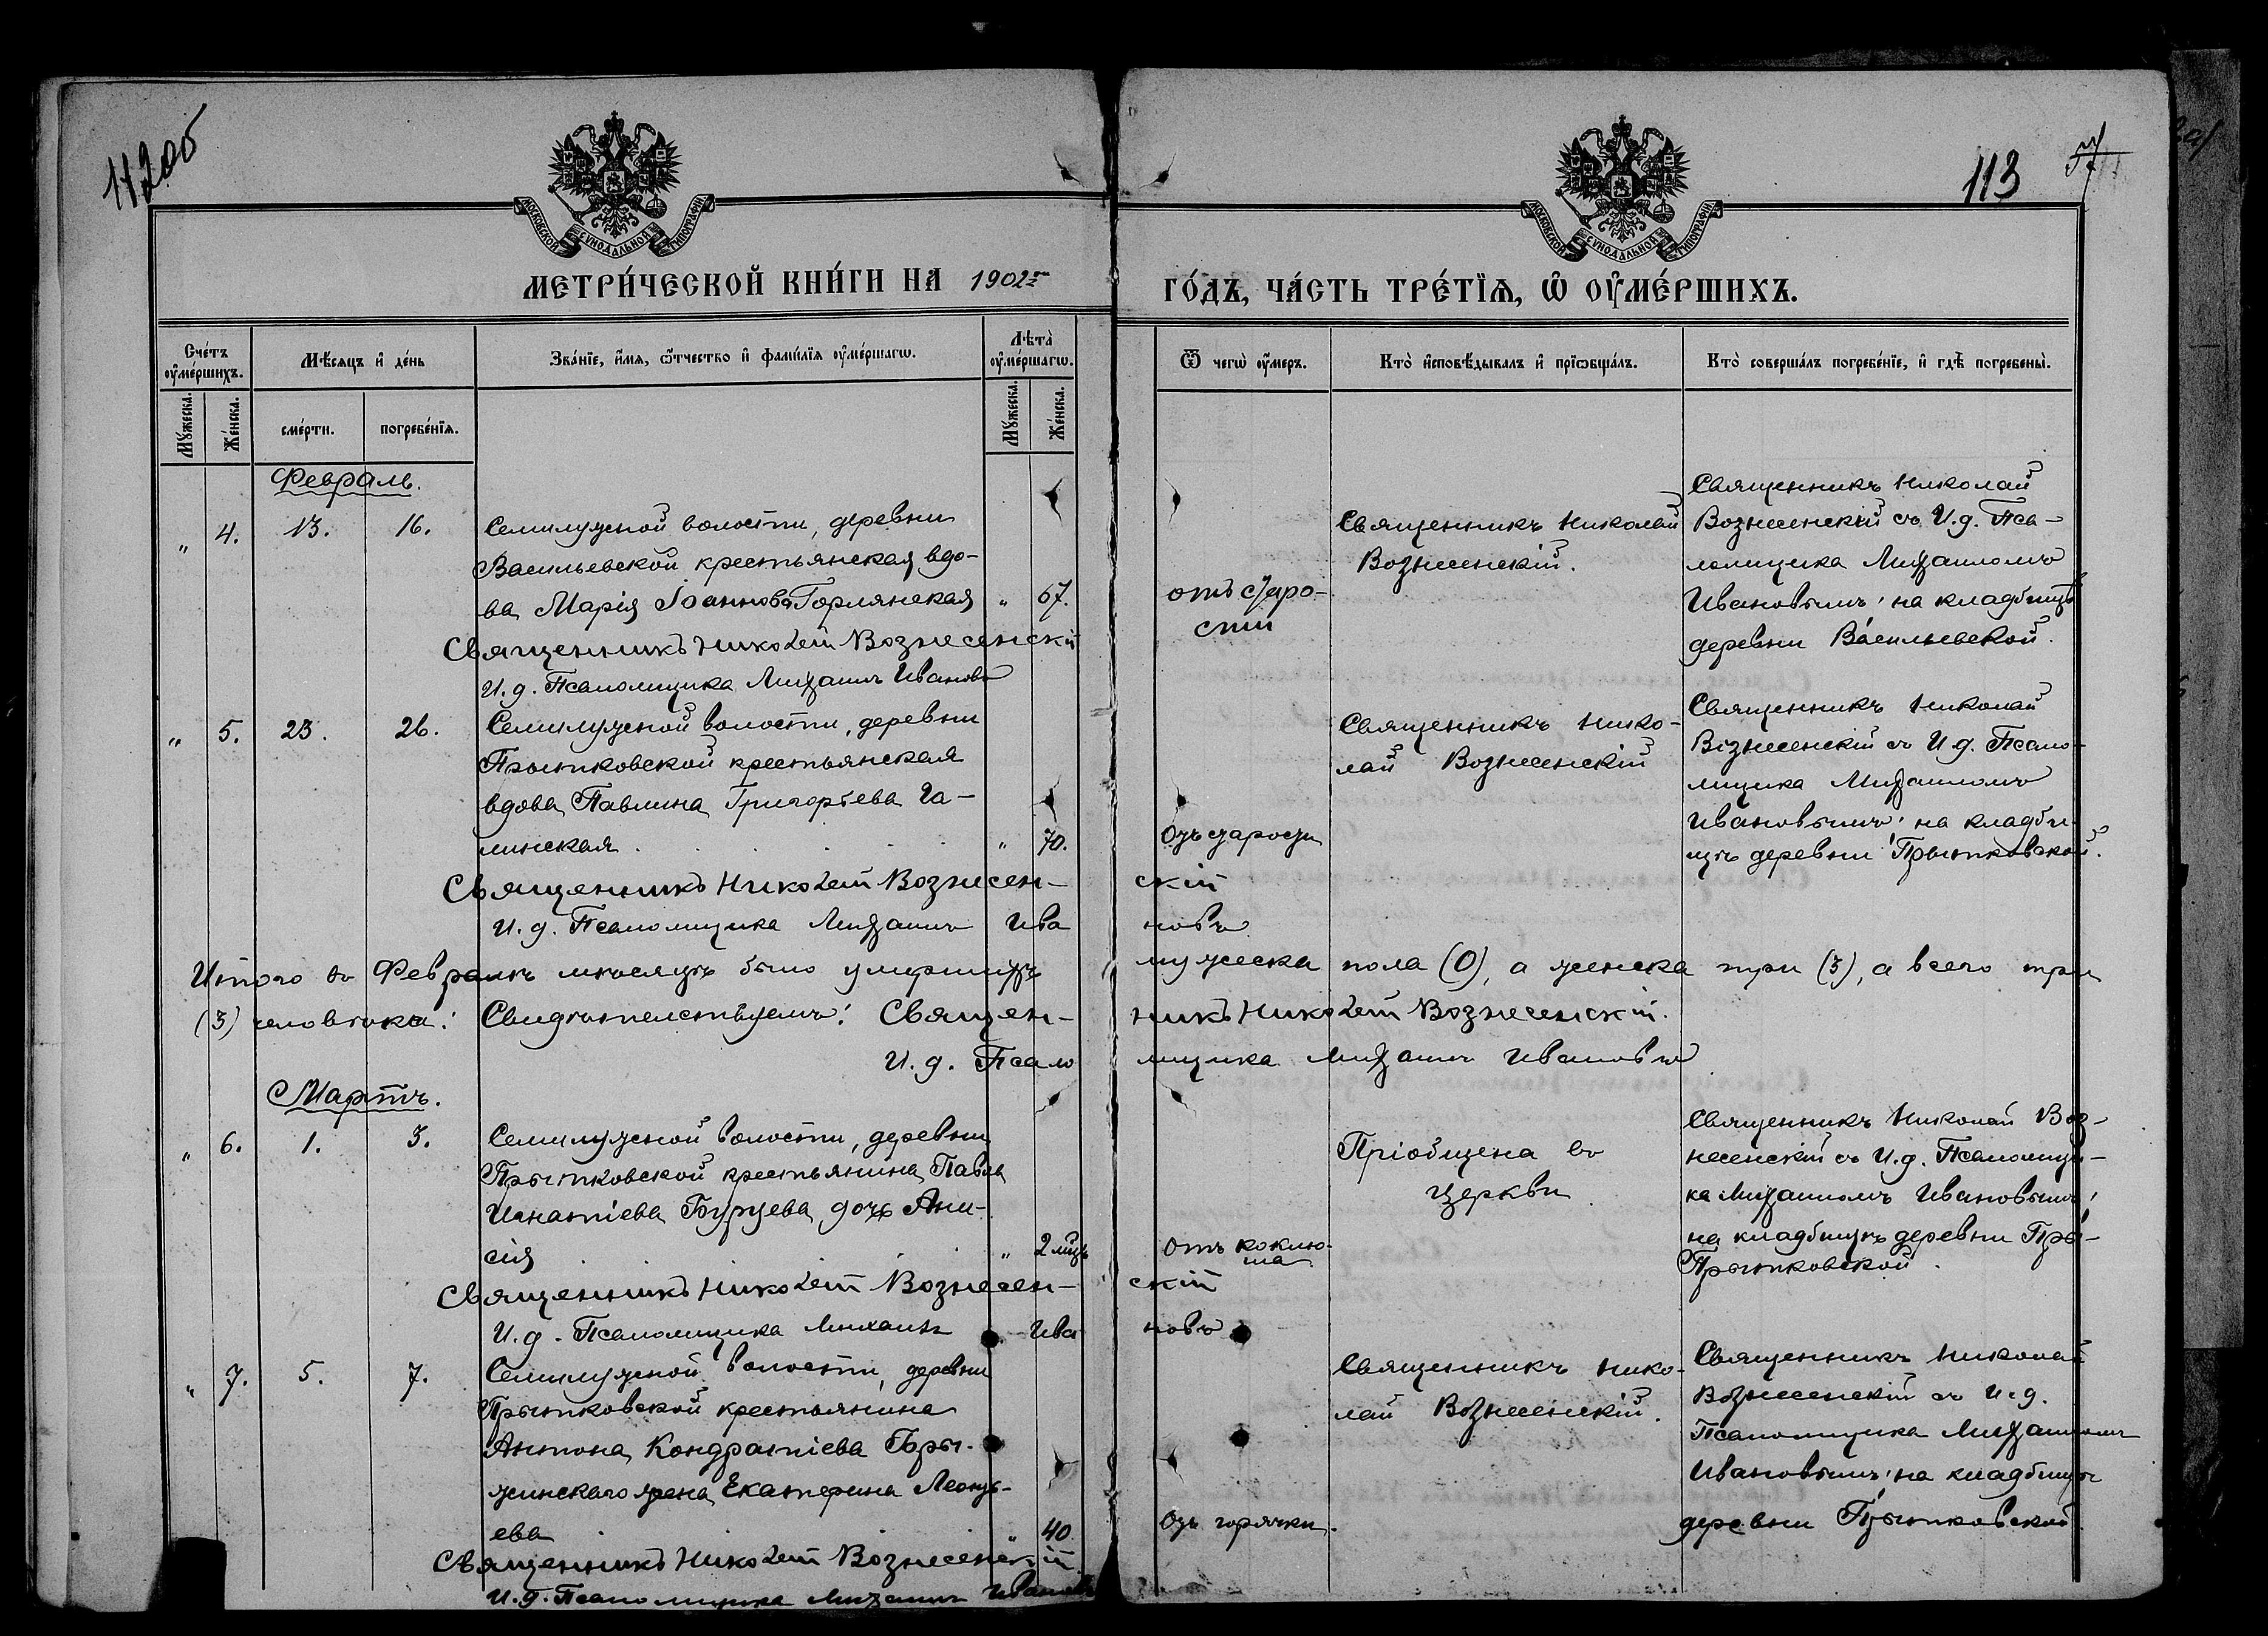 112об
113
57
МОСКОВСКОЙ СѴНОДАЛЬНОЙ ТИПОГРАФІИ
МОСКОВСКОЙ СѴНОДАЛЬНОЙ ТИПОГРАФІИ
МЕТРИ́ЧЕСКОЙ КНИ́ГИ НА 1902й
ГО́ДЪ, ЧА́СТЬ ТРЕ́ТЇѦ, Ѡ҆ ОУ҆МЕ́РШИХЪ.
Сче́тъ оу҆ме́ршихъ.
Мꙋжеска.
Же́нска.
Мѣ́сяцъ и҆ де́нь
сме́рти.
погребе́нїѧ.
Зва́нїе, и҆́мѧ, ѻ҆́тчество и҆ фами́лїѧ оу҆ме́ршагѡ.
Лѣта̀ оу҆ме́ршагѡ.
Мꙋ́жеска.
Же́нска.
Ѿ чегѡ̀ оу҆́меръ.
Кто̀ и҆сповѣ́дывалъ и҆ прїѡбща́лъ.
Кто̀ соверша́лъ погребе́нїе, и҆ гдѣ̀ погребены̀.
Февраль.
" 4. 13. 16.
Семилужной волости, деревни
Васильевской крестьянская вдо-
ва Марія Іоаннова Горлянская " 67.
отъ старо-
сти
Священникъ Николай
Вознесенскій.
Священникъ Николай
Вознесенскій съ И.д. Пса-
ломщика Михаиломъ
Ивановымъ; на кладбищѣ
деревни Васильевской.
Священникъ Николай Вознесенскій
И.д. Псаломщика Михаилъ Ивановъ
" 5. 23. 26.
Семилужной волости, деревни
Прытковской крестьянская
вдова Павлина Григорьева Га-
линская " 70.
Отъ старости
Священникъ Нико-
лай Вознесенскій
Священникъ Николай
Вознесенскій съ И.д. Псало-
мщика Михаиломъ
Ивановымъ; на кладби-
щѣ деревни Прытковской.
Священникъ Николай Вознесен- скій
И.д. Псаломщика Михаилъ Ива новъ
Итого въ Февралѣ мѣсяцѣ было умершихъ мужеска пола (0), а женска три (3), а всего три
(3) человѣка. Свидѣтельствуемъ: Священ- никъ Николай Вознесенскій.
И.д. Псало мщика Михаилъ Ивановъ
Мартъ.
" 6. 1. 3.
Семилужной волости, деревни
Прытковской крестьянина Павла
Игнатіева Бурцева дочь Ани-
сія " 2 мѣц.
Отъ коклю-
ша
Пріобщена въ
церкви
Священникъ Николай Воз-
несенскій съ И.д. Псаломщи-
ка Михаиломъ Ивановымъ;
на кладбищѣ деревни Пры-
Прытковской.
Священникъ Николай Вознесен- скій
И.д. Псаломщика Михаилъ Ива новъ
" 7. 5. 7.
Семилужной волости, деревни
Прытковской крестьянина
Антона Кондратіева Бры-
жинскаго жена Екатерина Леонть-
ева " 40
Отъ горячки.
Священникъ Нико-
лай Вознесенскій.
Священникъ Николай
Вознесенскій съ И.д.
Псаломщика Михаиломъ
Ивановымъ; на кладбищѣ
деревни Прытковской.
Священникъ Николай Вознесенскій
И.д. Псаломщика Михаилъ Ивановъ